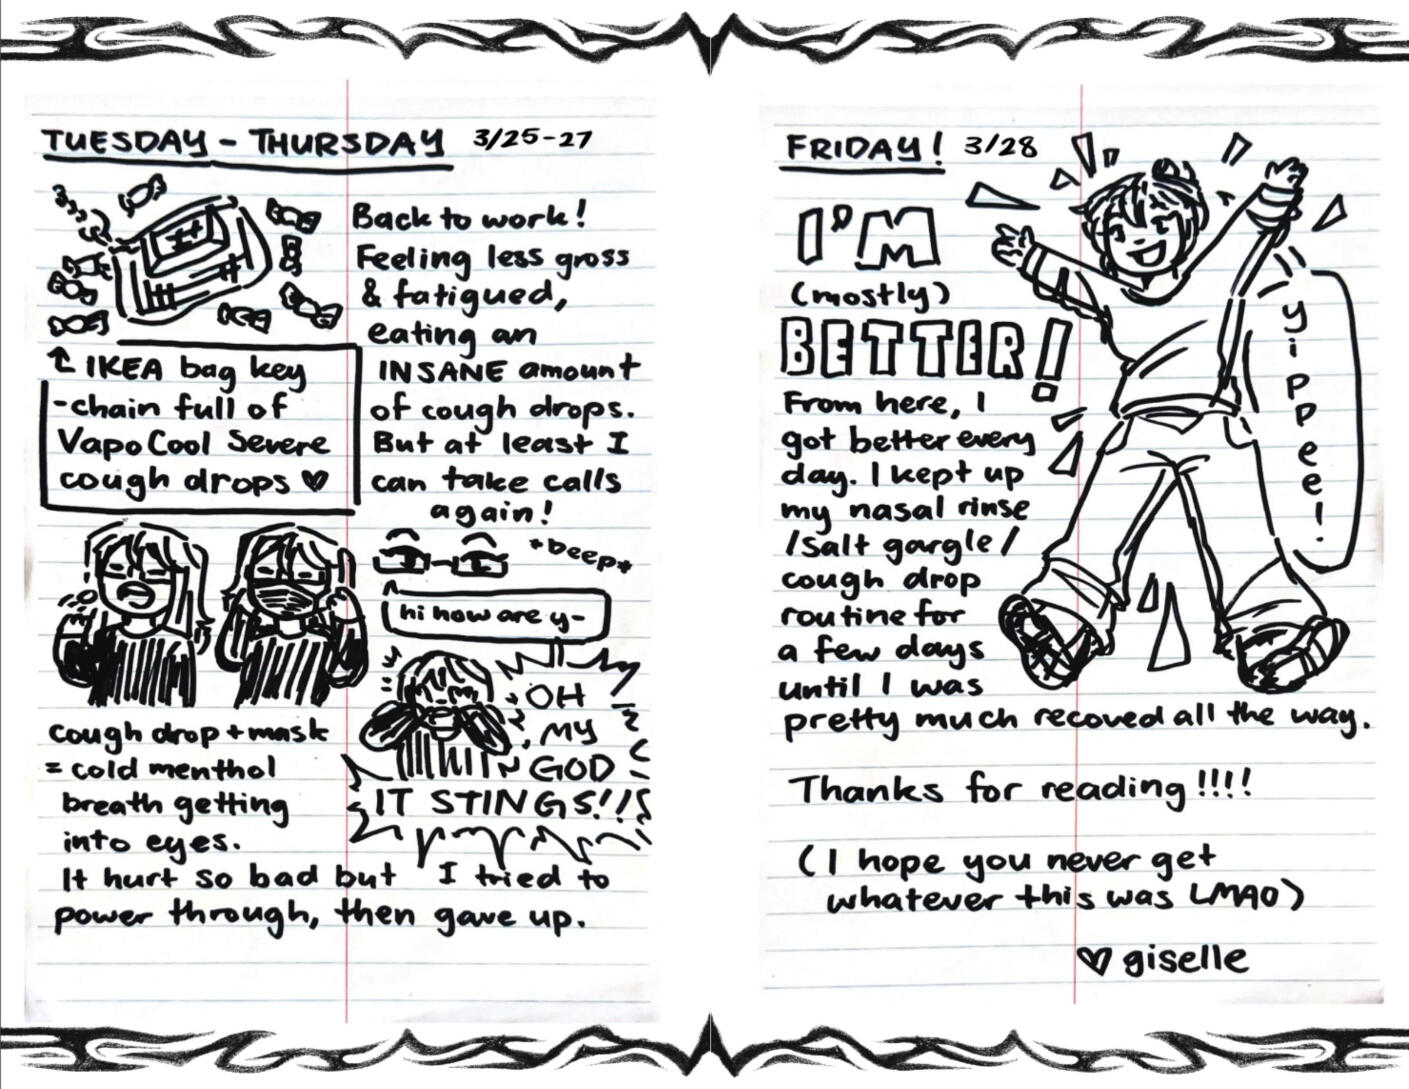 TUESDAY - THURSDAY 3/25-27
Back to work!
Feeling less gross
& fatigued,
eating an
INSANE amount
of cough drops.
But at least I
can take calls
again!
↑ IKEA bag key
-chain full of
VapoCool Severe
cough drops ♥
*beep*
hi how are y-
OH
MY
GOD
IT STINGS!!!
cough drop + mask
= cold menthol
breath getting
into eyes.
It hurt so bad but I tried to
power through, then gave up.
FRIDAY! 3/28
I'M
(mostly)
BETTER!
yippee!
From here, I
got better every
day. I kept up
my nasal rinse
/salt gargle/
cough drop
routine for
a few days
until I was
pretty much recoved all the way.
Thanks for reading!!!!
(I hope you never get
whatever this was LMAO)
♥ giselle